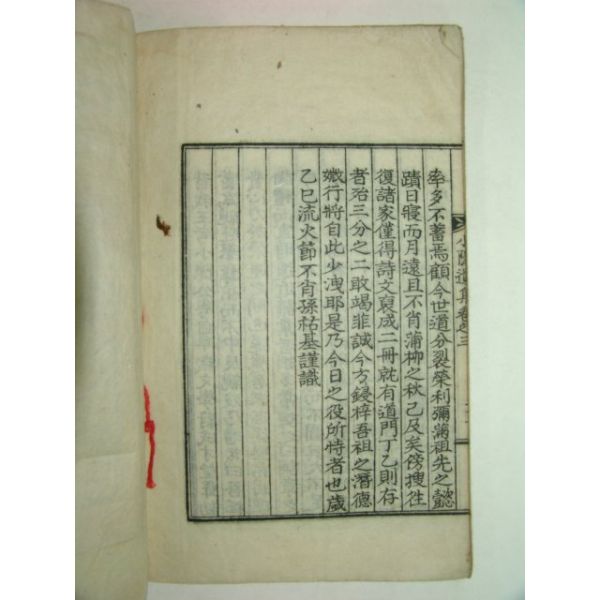 率多不蓄焉顧今世道分裂榮利彌滿祖先之懿
蹟日寢而月遠且不肖蒲柳之秋已及矣傍搜往
復諸家僅得詩文裒成二冊就有道門丁乙則存
者治三分之二敢竭菲誠今方鋟梓吾祖之潛德
媺行將自此少洩耶是乃今日之役所恃者也歲
乙巳流火節不肖孫祜基謹識
遺集卷之三